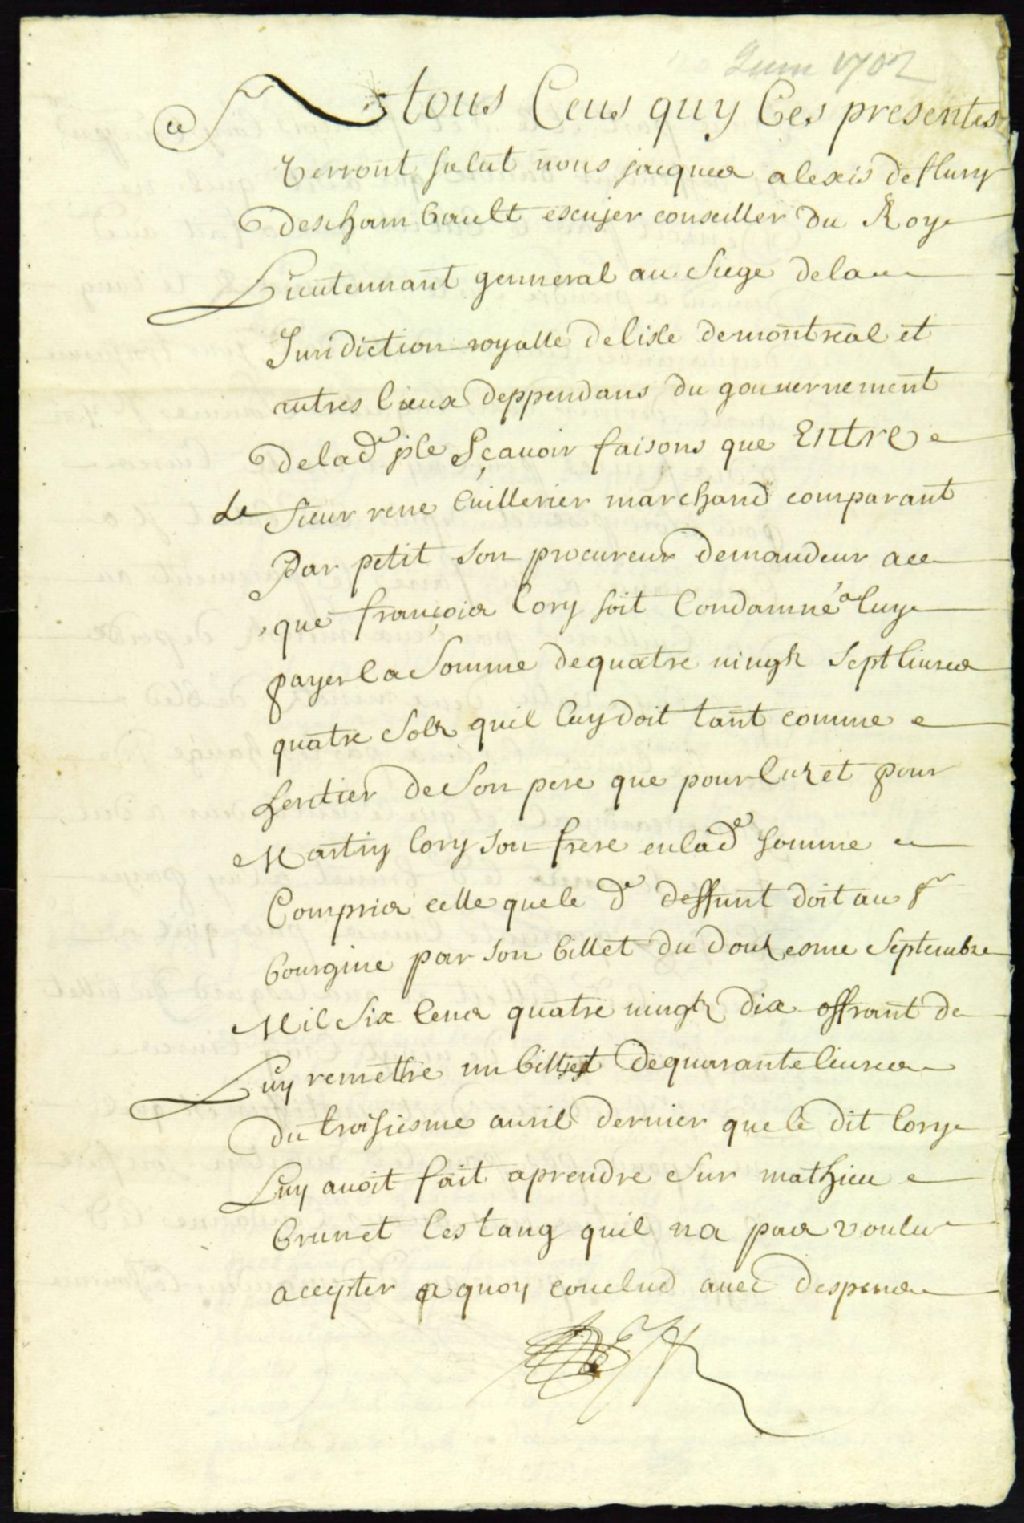 Juin 1702
A tous Ceus quy Ces presentes
Verront salut nous jacques alexis deflury
deschambault escujer conseiller du Roy
Lieutennant genneral au siege de la
Juridiction royalle de lisle de montreal et
autres lieux deppendans du gouuernement
de lade jsle Sçauoir faisons que Entre
Le Sieur rene Cuillerier marchand comparant
Par petit son procureur demandeur a ce
que françois Cory soit Condamné a luy
payer la Somme de quatre uingts sept liures
quatre Sols quil luy doit tant comme
heritier de Son pere que pour luy et pour
Martin Cory son frere en lade somme
Compris celle que le dt deffunt doit au Sr
bourgine par son billet du douzesme Septembre
Mil Six Cens quatre uingts dix offrant de
Luy remettre un billet de quarante liures
du troisiesme auril dernier que le dit Cory
Luy auoit fait aprendre sur mathieu
brunet lestang quil na pas voulu
accepter a quoy conclud auec despens